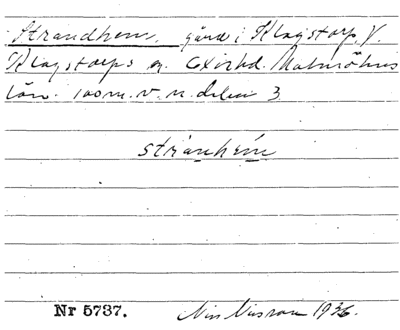 Strandhem, gård i Klagstorp V.
Klagstorps sn. Oxie hd. Malmöhus
län. 100 m. v. n. delen 3
strànhèm
Nr 5737. Nils 1936.